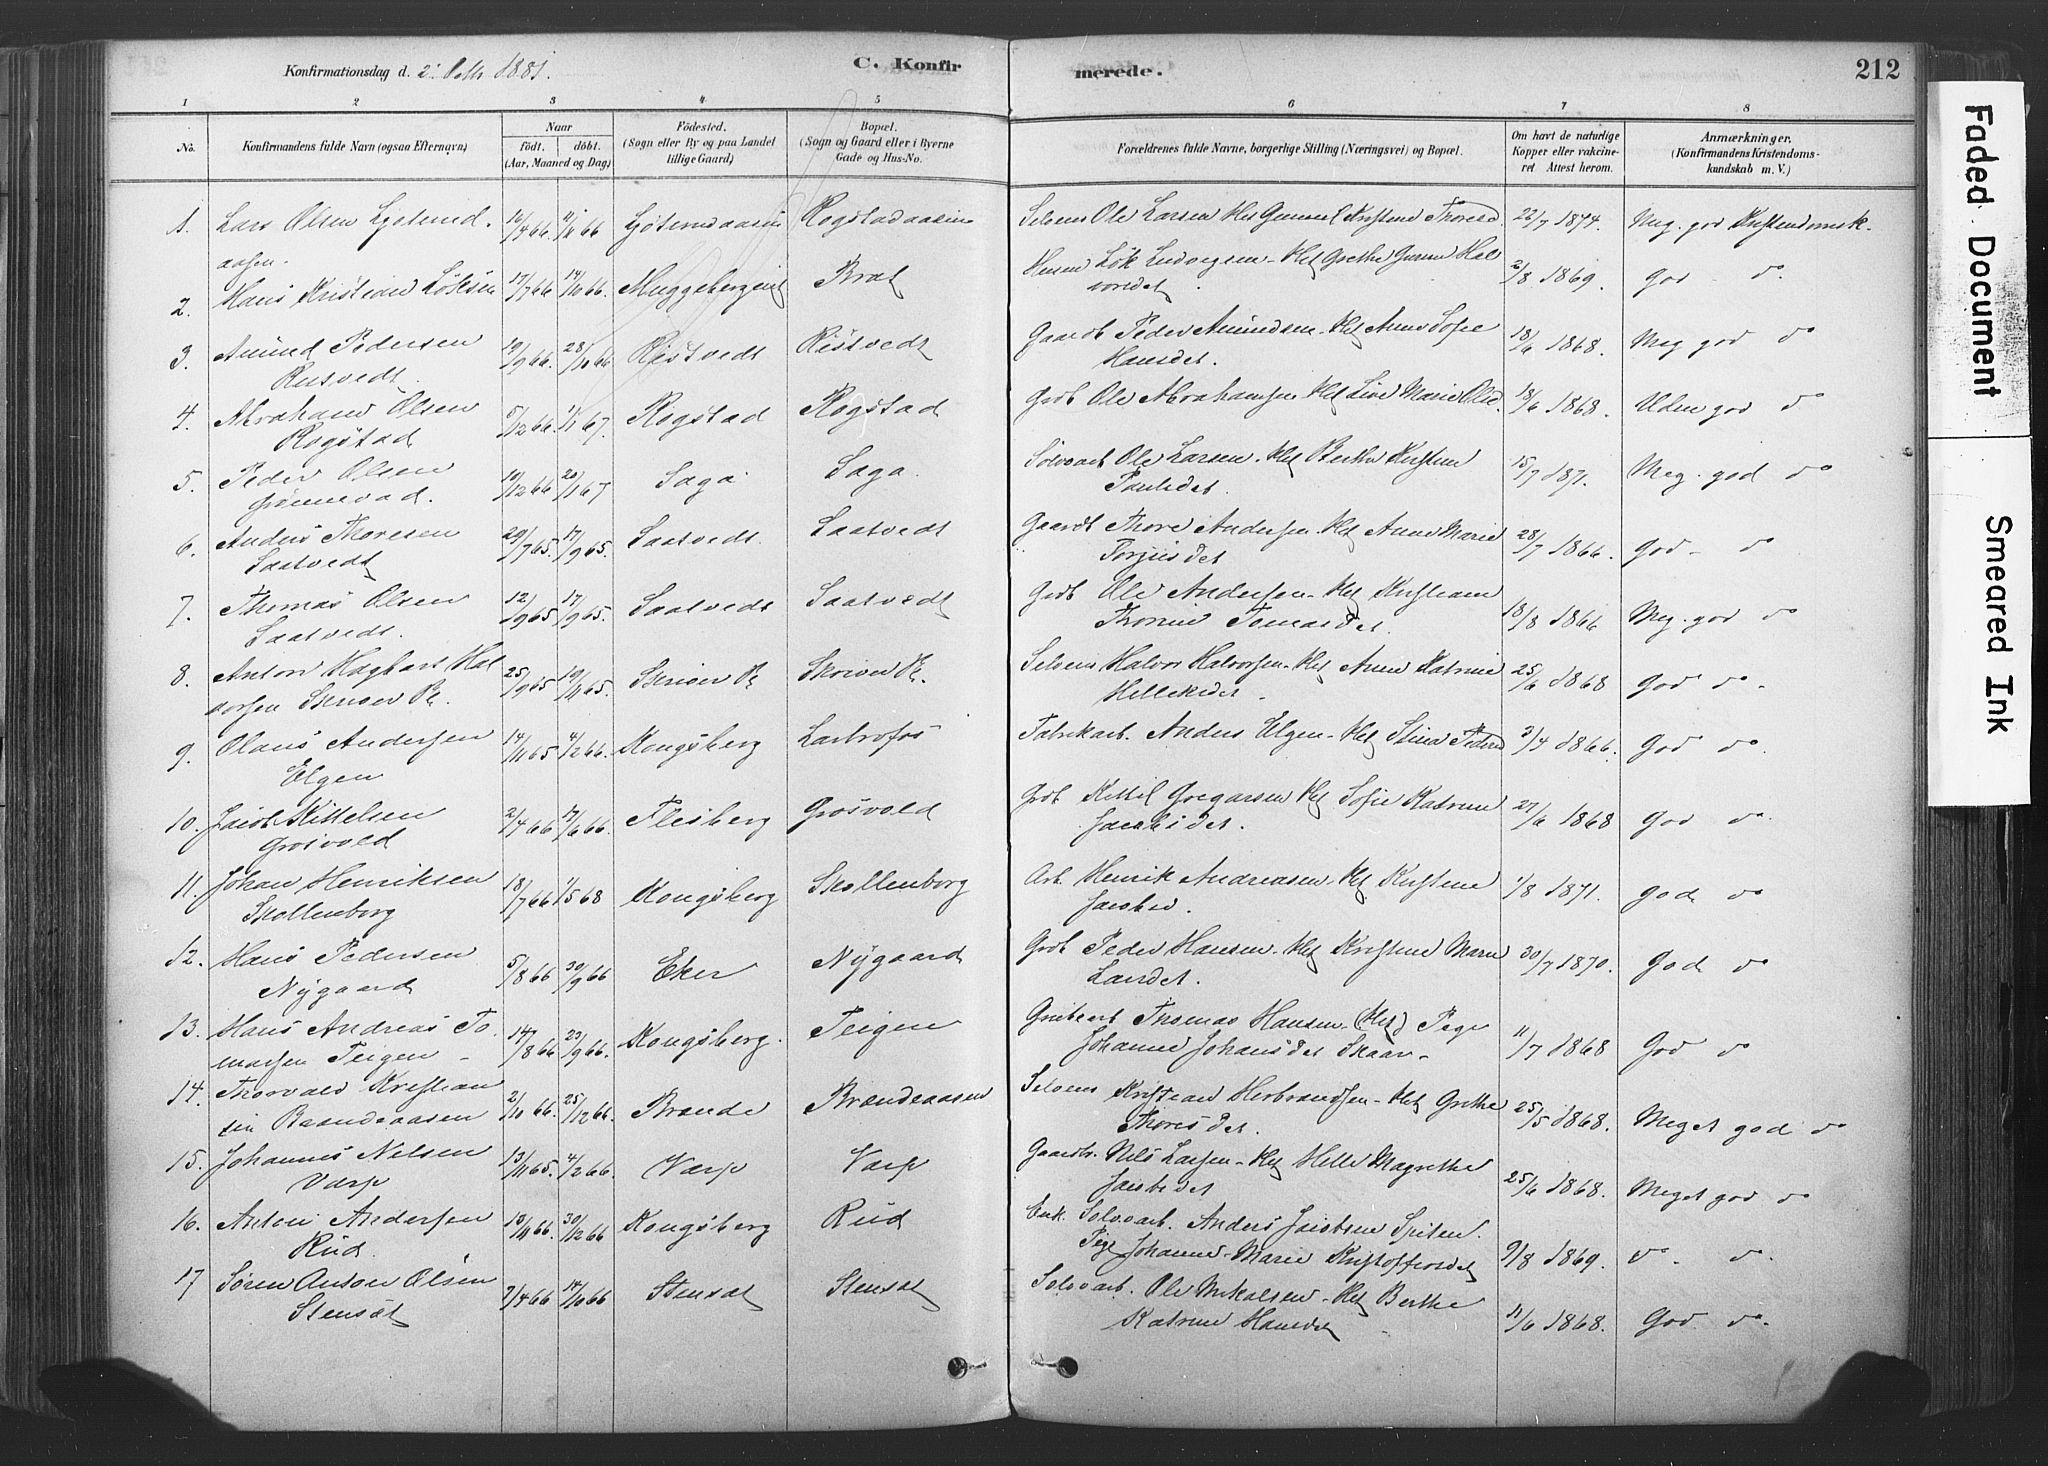 Konfirmationsdag d. 2 1881.
C. Konfirmerede.
212
1 2 3 4 5 6 7 8
No.
Konfirmandens fulde Navn (ogsaa Efternavn)
Naar
födt. döbt.
(Aar, Maaned og Dag)
Födested.
(Sogn eller By og paa Landet
tillige Gaard)
Bopæl.
(Sogn og Gaard eller i Byerne
Gade og Hus-No.
Forældrenes fulde Navne, borgerlige Stilling (Næringsvei) og Bopæl.
Om havt de naturlige
Kopper eller vakcine-
ret Attest herom.
Anmærkninger,
(Konfirmandens Kristendoms-
kundskab m. V.)
1. Lars Olsen 16/4 66 11/11 66 Rogstadaasen Ole Larsen 22/7 1874. Meg. god Kristendomsk.
2. Hans Kristian Löksen 17/7 66 14/10 66. Muggeberg Bræt Lök Ludvigsen 2/8 1869. god do.
3. Amund Pedersen 19/9 66. 28/10 66 Ristvedt Ristvedt Gaardb Peder Amundsen Hst Anne Sofie
Hansdet. 18/6 1868. Meg god do
4. Abraham Olsen
Rogstad 5/12 66. 1/1 67. Rogstad Rogstad Grdb Ole Abrahamsen Hst Live Marie Olsd. 18/6 1868. Uden god do
5. Peder Olsen 10/12 66 20/1 67 Saga Saga Sölvarb Ole Larsen Hst Berthe Kirstine
Paulsdet. 15/7 1871. Meg. god do
6. Anders Thoresen
Saatvedt 29/7 65. 17/9 65. Saatvedt Saatvedt Gaardb Thore Andersen Hst Anne Marie
Torjusdet 28/7 1866. god do
7. Thomas Olsen
Saatvedt. 12/9 65 17/9 65. Saatvedt Saatvedt Grdb Ole Andersen
18/8 1866 Meg. god do
8. Anton Hagbart Hal
vorsen 25/9 65 19/11 65. Halvor Halvorsen Hst Anne Katrine
25/6 1868 god do
9. Olaus Andersen
Elgen 14/11 65 4/2 66. Kongsberg Labrofos Fabrikarb Anders Elgen Hst Stina 3/4 1866. God do.
10. Jacob Kittelsen
Grosvold 2/4 66 17/6 66. Flesberg Grosvold Grdb Kittil Gregarsen Hst Sofie Katrine
Jacobsdet. 27/6 1868 God do.
11. Johan Henriksen
Skollenborg 18/7 66 1/5 68 Kongsberg Skollenborg Arb. Henrik Andreasen Hst Kirstine
1/8 1871. god do
12. Hans Pedersen
Nygaard 5/8 66 30/9 66 Eker Nygaard Grdb Peder Hansen Hst Kirstine Marie
Larsdet. 30/7 1870. God do
13. Hans Andreas To
masen Teigen 14/8 66 23/9 66. Kongsberg. Teigen Thomas Hansen (Hst) Pige
Johanne Johansdet Skaar 11/7 1868 God do
14. Thorvald Kristian
sen Brændeaasen 2/10 66. 25/12 66. Brænde Brændeaasen Kristian Herbrandsen Hst Grethe
Thoresdet. 25/5 1868. Meget god do
15. Johannes Nilsen
Værp 13/11 65. 4/2 66. Værp Værp Gaardb. Nils Larsen Hst Helle Magrethe
Jacobsdet 25/6 1868. Meget god do
16. Anton Andersen
Rud. 13/11 66. 30/12 66 Kongsberg Rud Enk. Solvarb. Anders Jacobsen Spiten.
Pige Johanne Marie Kristoffersdet 9/8 1869. do. do.
17 Søren Anton Olsen
Stensæt 7/4 66 14/10 66 Stensæt Stensæt Solvarb. Ole Mikalsen Hst Berthe
Katrine Hansdet 11/6 1868. God do.
Faded Document
Smeared Ink